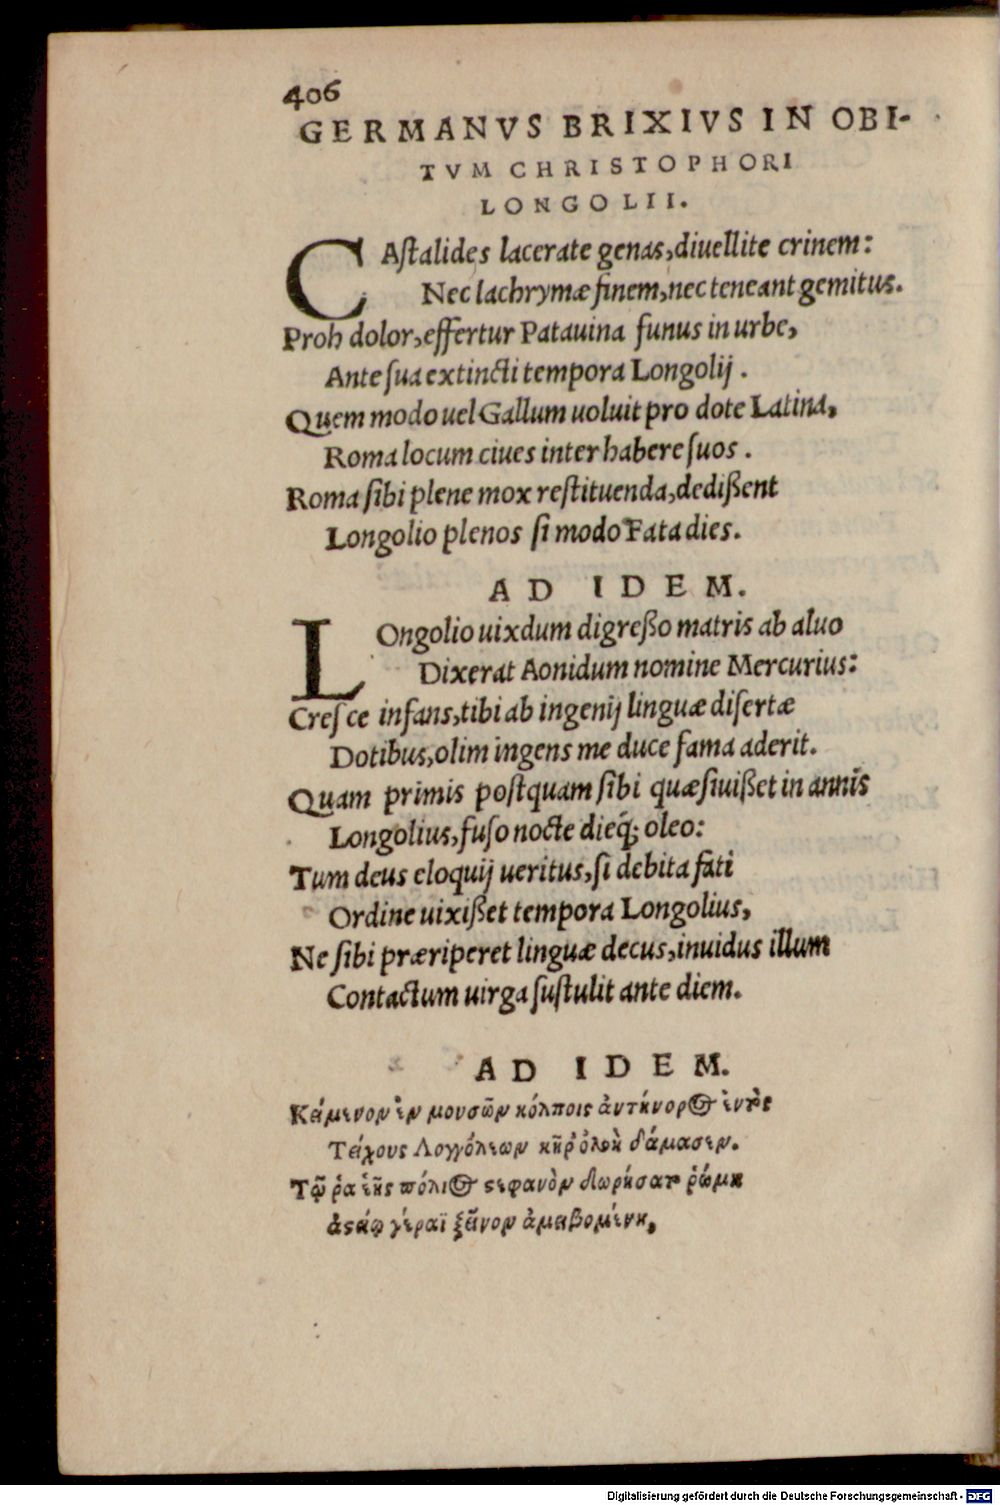 406
GERMANVS BRIXIVS IN OBI-
TVM CHRISTOPHORI
LONGOLII.
CAſtalides lacerate genas, diuellite crinem:
Nec lachrymæ finem, nec teneant gemitus.
Proh dolor, effertur Patauina funus in urbe,
Ante ſua extincti tempora Longolij.
Quem modo uel Gallum uoluit pro dote Latina,
Roma locum ciues inter habere ſuos.
Roma ſibi plene mox reſtituenda, dedißent
Longolio plenos ſi modo Fata dies.
AD IDEM.
LOngolio uixdum digreßo matris ab aluo
Dixerat Aonidum nomine Mercurius:
Creſce infans, tibi ab ingenij linguæ diſertæ
Dotibus, olim ingens me duce fama aderit.
Quam primis poſtquam ſibi quæſiuißet in annis
Longolius, fuſo nocte dieq́; oleo:
Tum deus eloquij ueritus, ſi debita fati
Ordine uixißet tempora Longolius,
Ne ſibi præriperet linguæ decus, inuidus illum
Contactum uirga ſuſtulit ante diem.
AD IDEM.
Κείμενον ἐν μουσῶν κόλποις ἀντήνορος ἐντὸς
Τείχους Λογγόλιων κῆρ ὀλοὴ δάμασεν.
Τῷ ῥα ἑῆς πόλιος στεφανὸν δωρήσατο ῥώμη
ἀστείῳ γέραϊ ξεῖνον ἀμειβομένη,
Digitalisierung gefördert durch die Deutsche Forschungsgemeinschaft - DFG